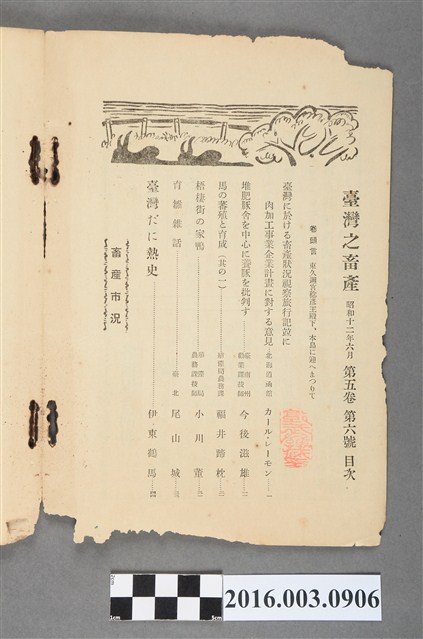 臺灣之畜產 昭和十二年六月 第五卷 第六號 目次
卷頭言 東久邇宮稔彥王殿下、本島に迎へまつりて
臺灣に於ける畜產狀況視察旅行記竝に
肉加工事業企業計畫に對する意見…北海道函館 カール・レーモン…一
堆肥豚舍を中心に養豚を批判す 臺南州農業課技師 今後滋雄…
馬の蕃殖と育成(其の一)… 福井蹄枕…
梧棲街の家鴨… 小川 董…
育雛雜話…臺北 尾山城…
臺灣だに熱史… 伊東鶴馬…
畜產市況
1cm
5cm
2016.003.0906